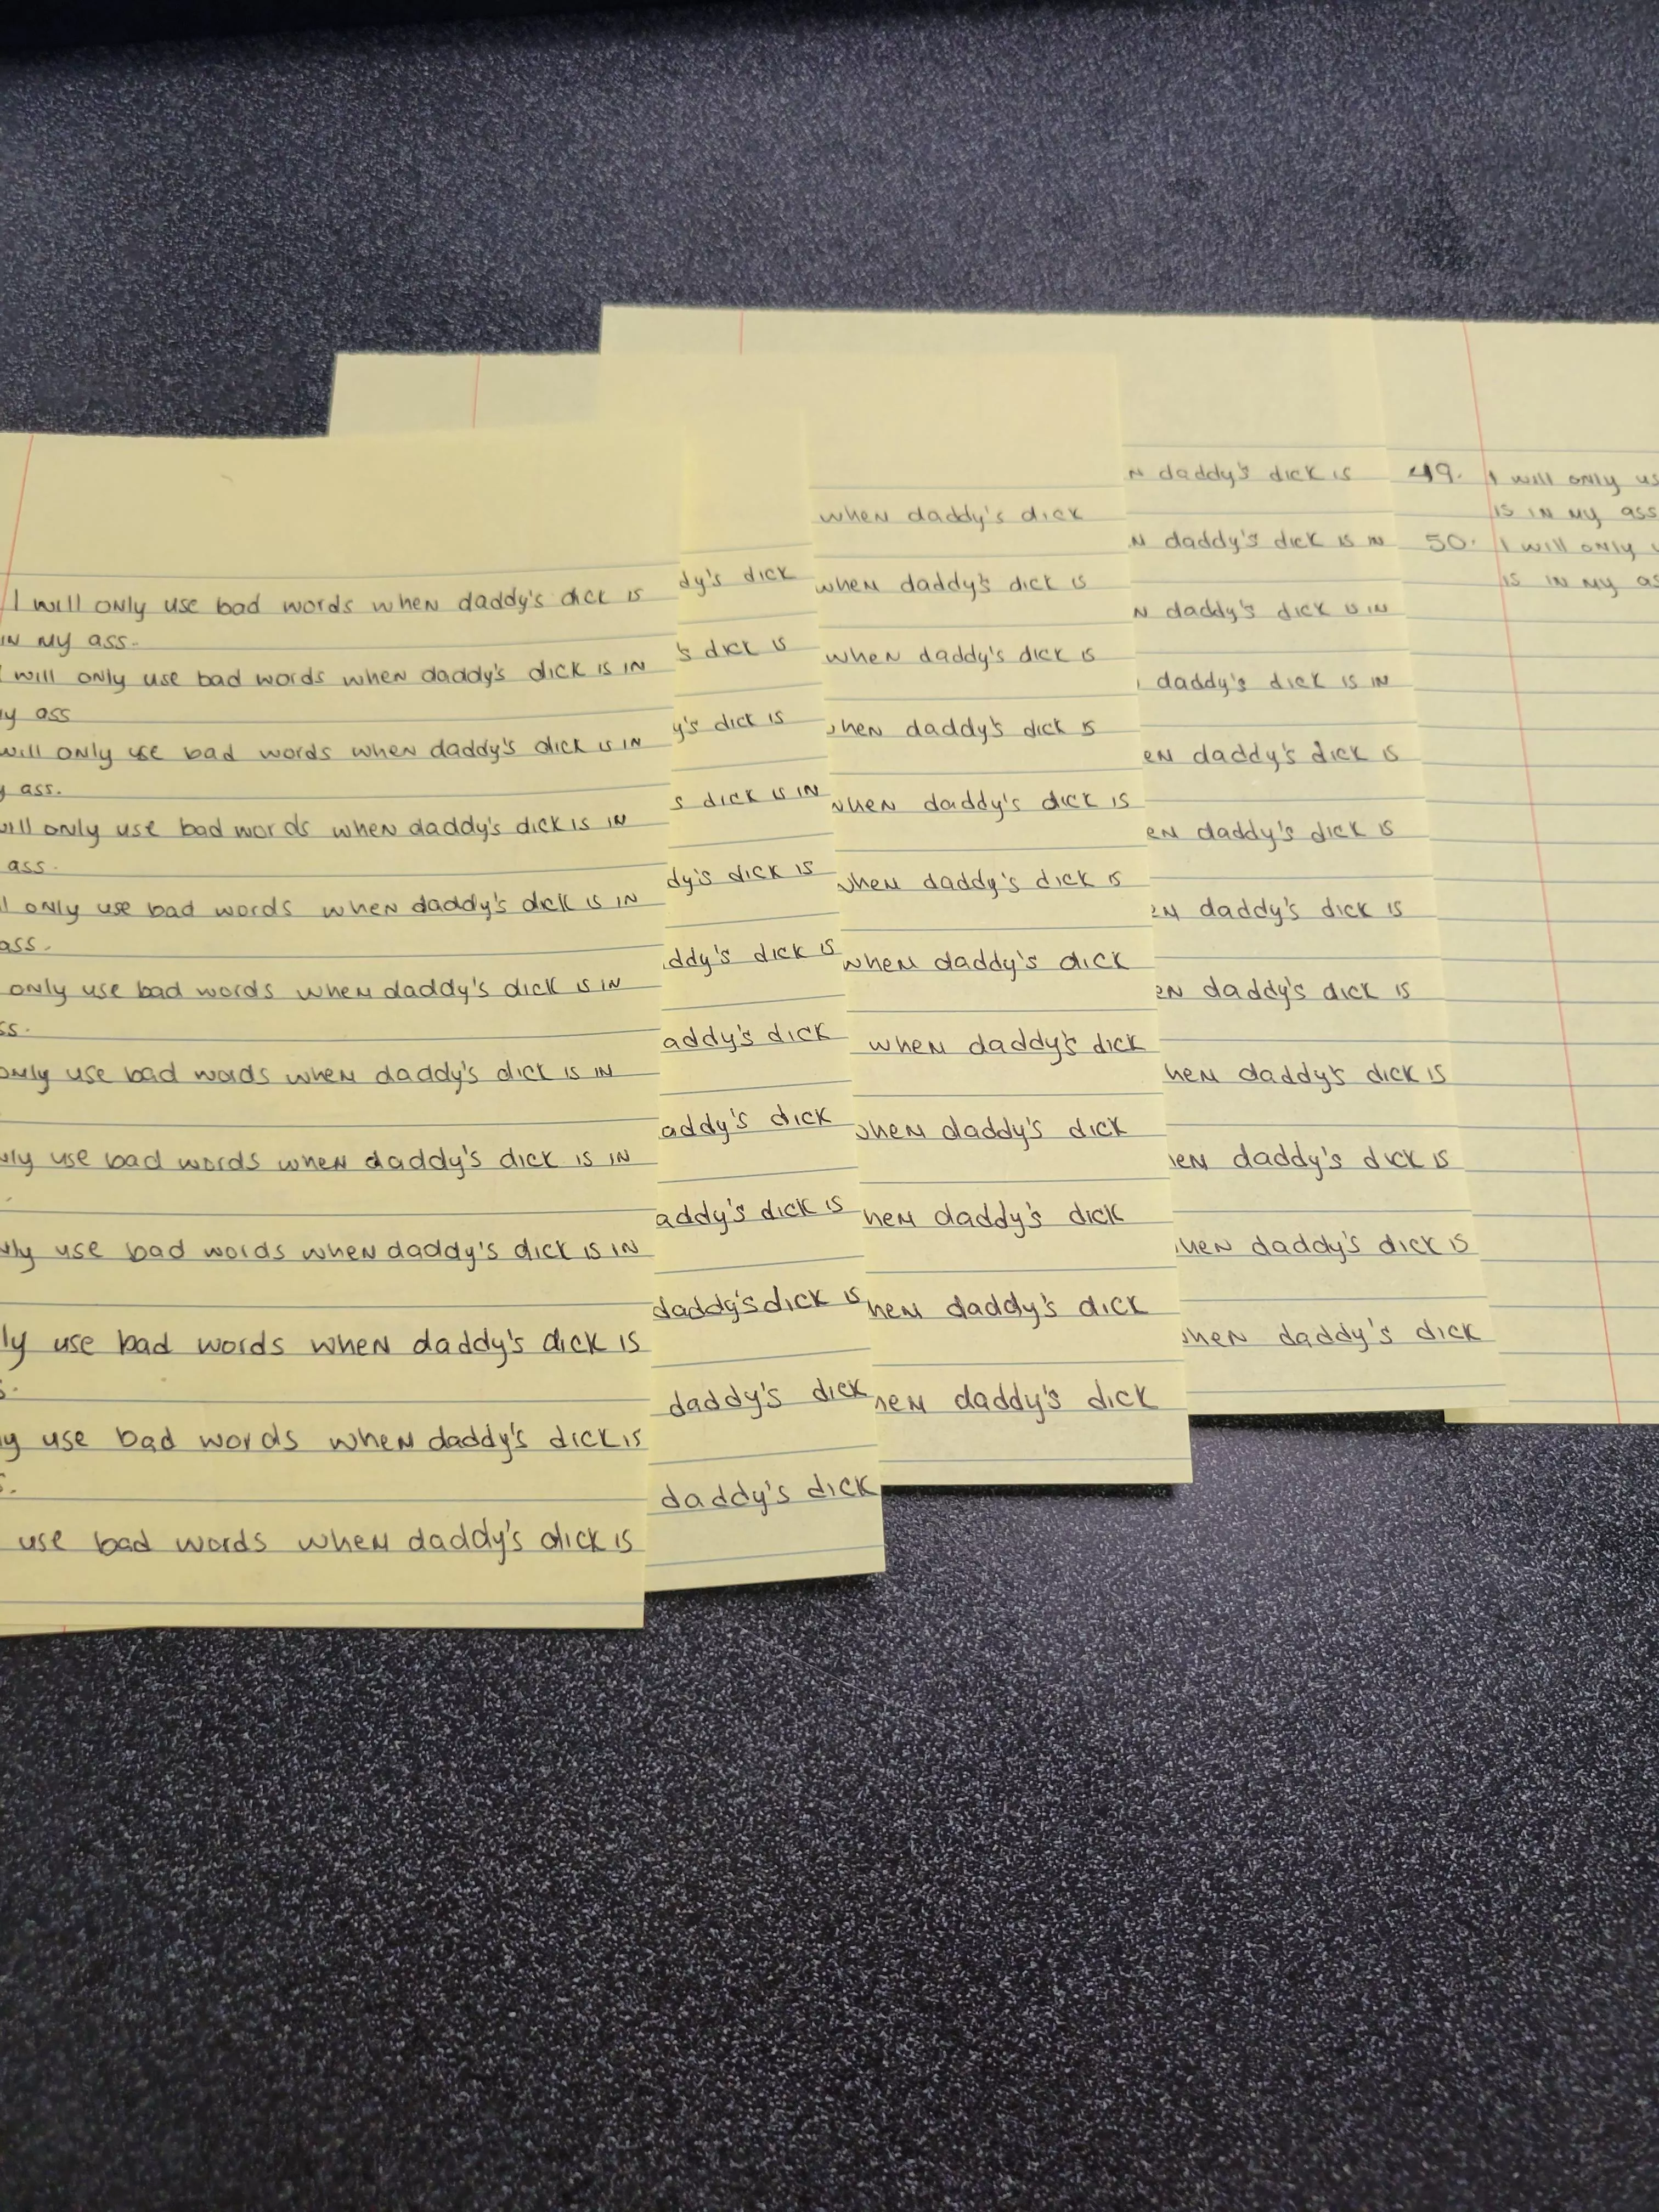 I will only use bad words when daddy's dick is
in my ass.
will only use bad words when daddy's dick is in
ass
will only use bad words when daddy's dick is in
ass.
only use bad words when daddy's dick is in
ass.
only use bad words when daddy's dick is in
ass.
only use bad words when daddy's dick is in
only use bad words when daddy's dick is in
use bad words when daddy's dick is in
use bad words when daddy's dick is in
use bad words when daddy's dick is
use bad words when daddy's dick is
use bad words when daddy's dick is
dick
dick is
dick is
dick is in
dick is
dick is
dick
dick
dick is
daddy's dick is
daddy's dick
daddy's dick
when daddy's dick
when daddy's dick is
when daddy's dick is
daddy's dick is
when daddy's dick is
when daddy's dick is
when daddy's dick
when daddy's dick
daddy's dick
daddy's dick
daddy's dick
daddy's dick
daddy's dick is
daddy's dick is in
daddy's dick is in
daddy's dick is in
daddy's dick is
daddy's dick is
daddy's dick is
daddy's dick is
daddy's dick is
daddy's dick is
daddy's dick is
daddy's dick
49. I will only
is in my ass
50. I will only
is in my